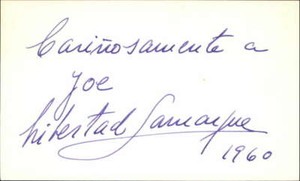 Cariñosamente a
Joe
Libertad Lamarque
1960